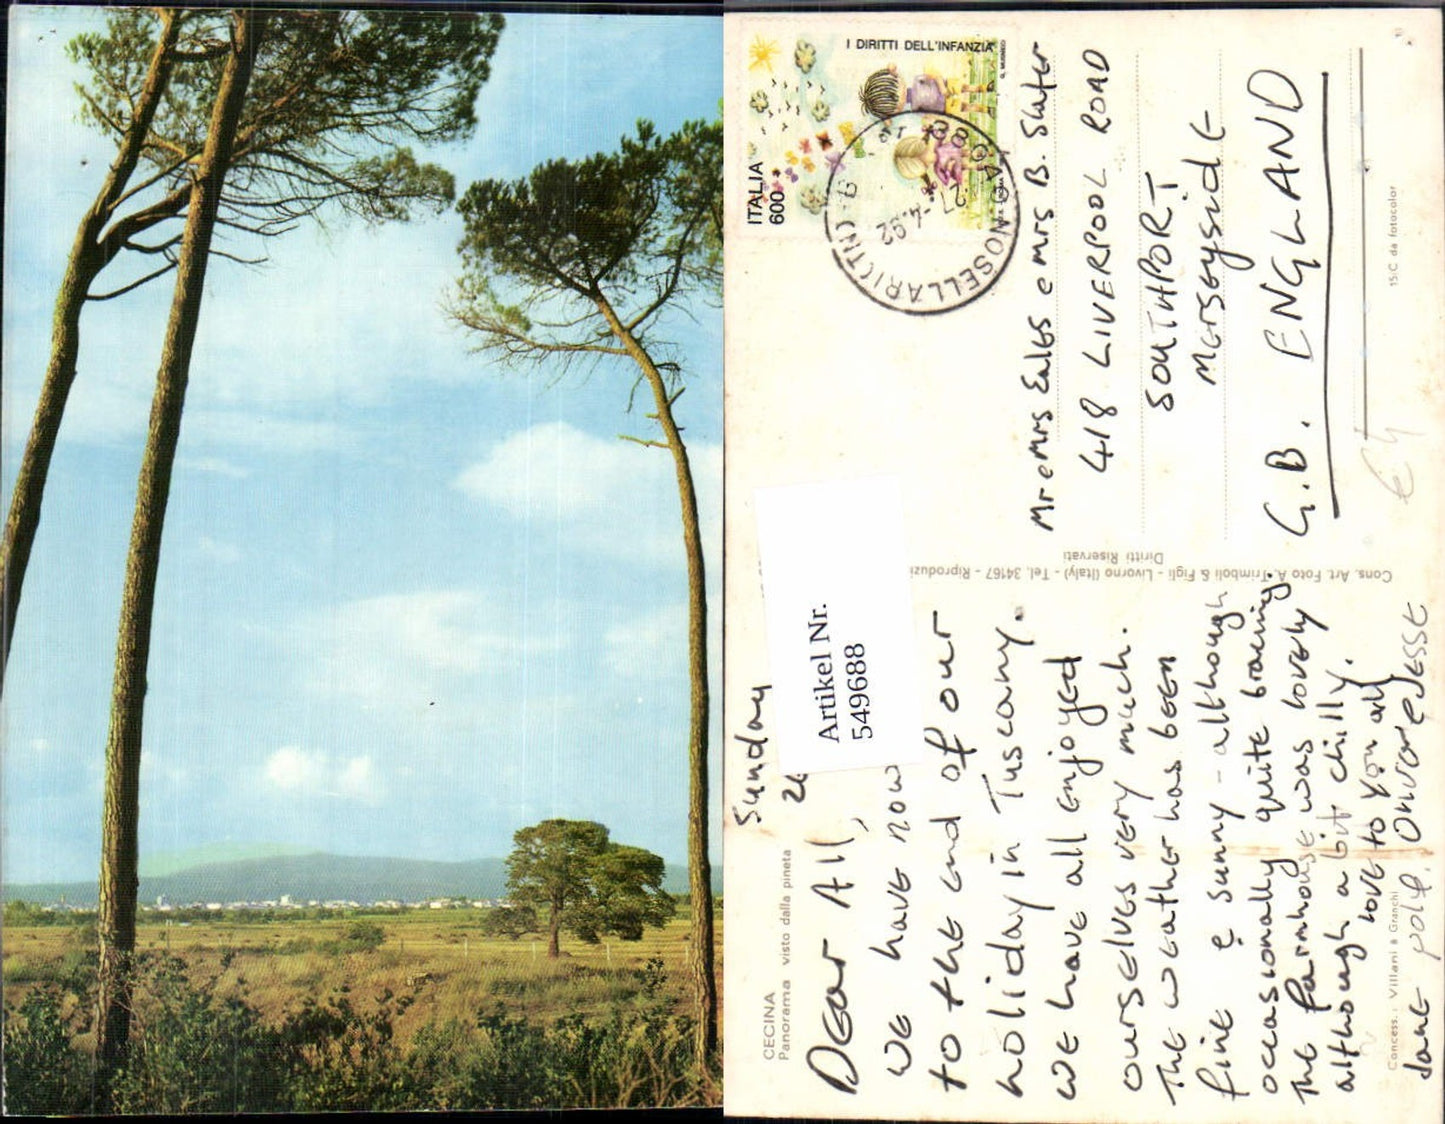 CECINA
Panorama visto dalla pineta
Sunday
Dear All,
we have now
to the end of our
holiday in Tuscany.
we have all enjoyed
ourselves very much.
The weather has been
fine & sunny - although
occasionally quite
The farmhouse was lovely
although a bit chilly.
love to you all
Jane
JESSE
Concess.: Villani a Granchi
Artikel Nr.
549688
Cons. Art. Foto A. Trimboli & Figli - Livorno (Italy) - Tel. 34167 - Riproduzi
Diritti Riservati
I DIRITTI DELL'INFANZIA
ITALIA
600
27.-4.92
Mr e Mrs Eales e Mrs B. Slater
418 LIVERPOOL ROAD
SOUTHPORT
Merseyside
G.B. ENGLAND
15:C da fotocolor